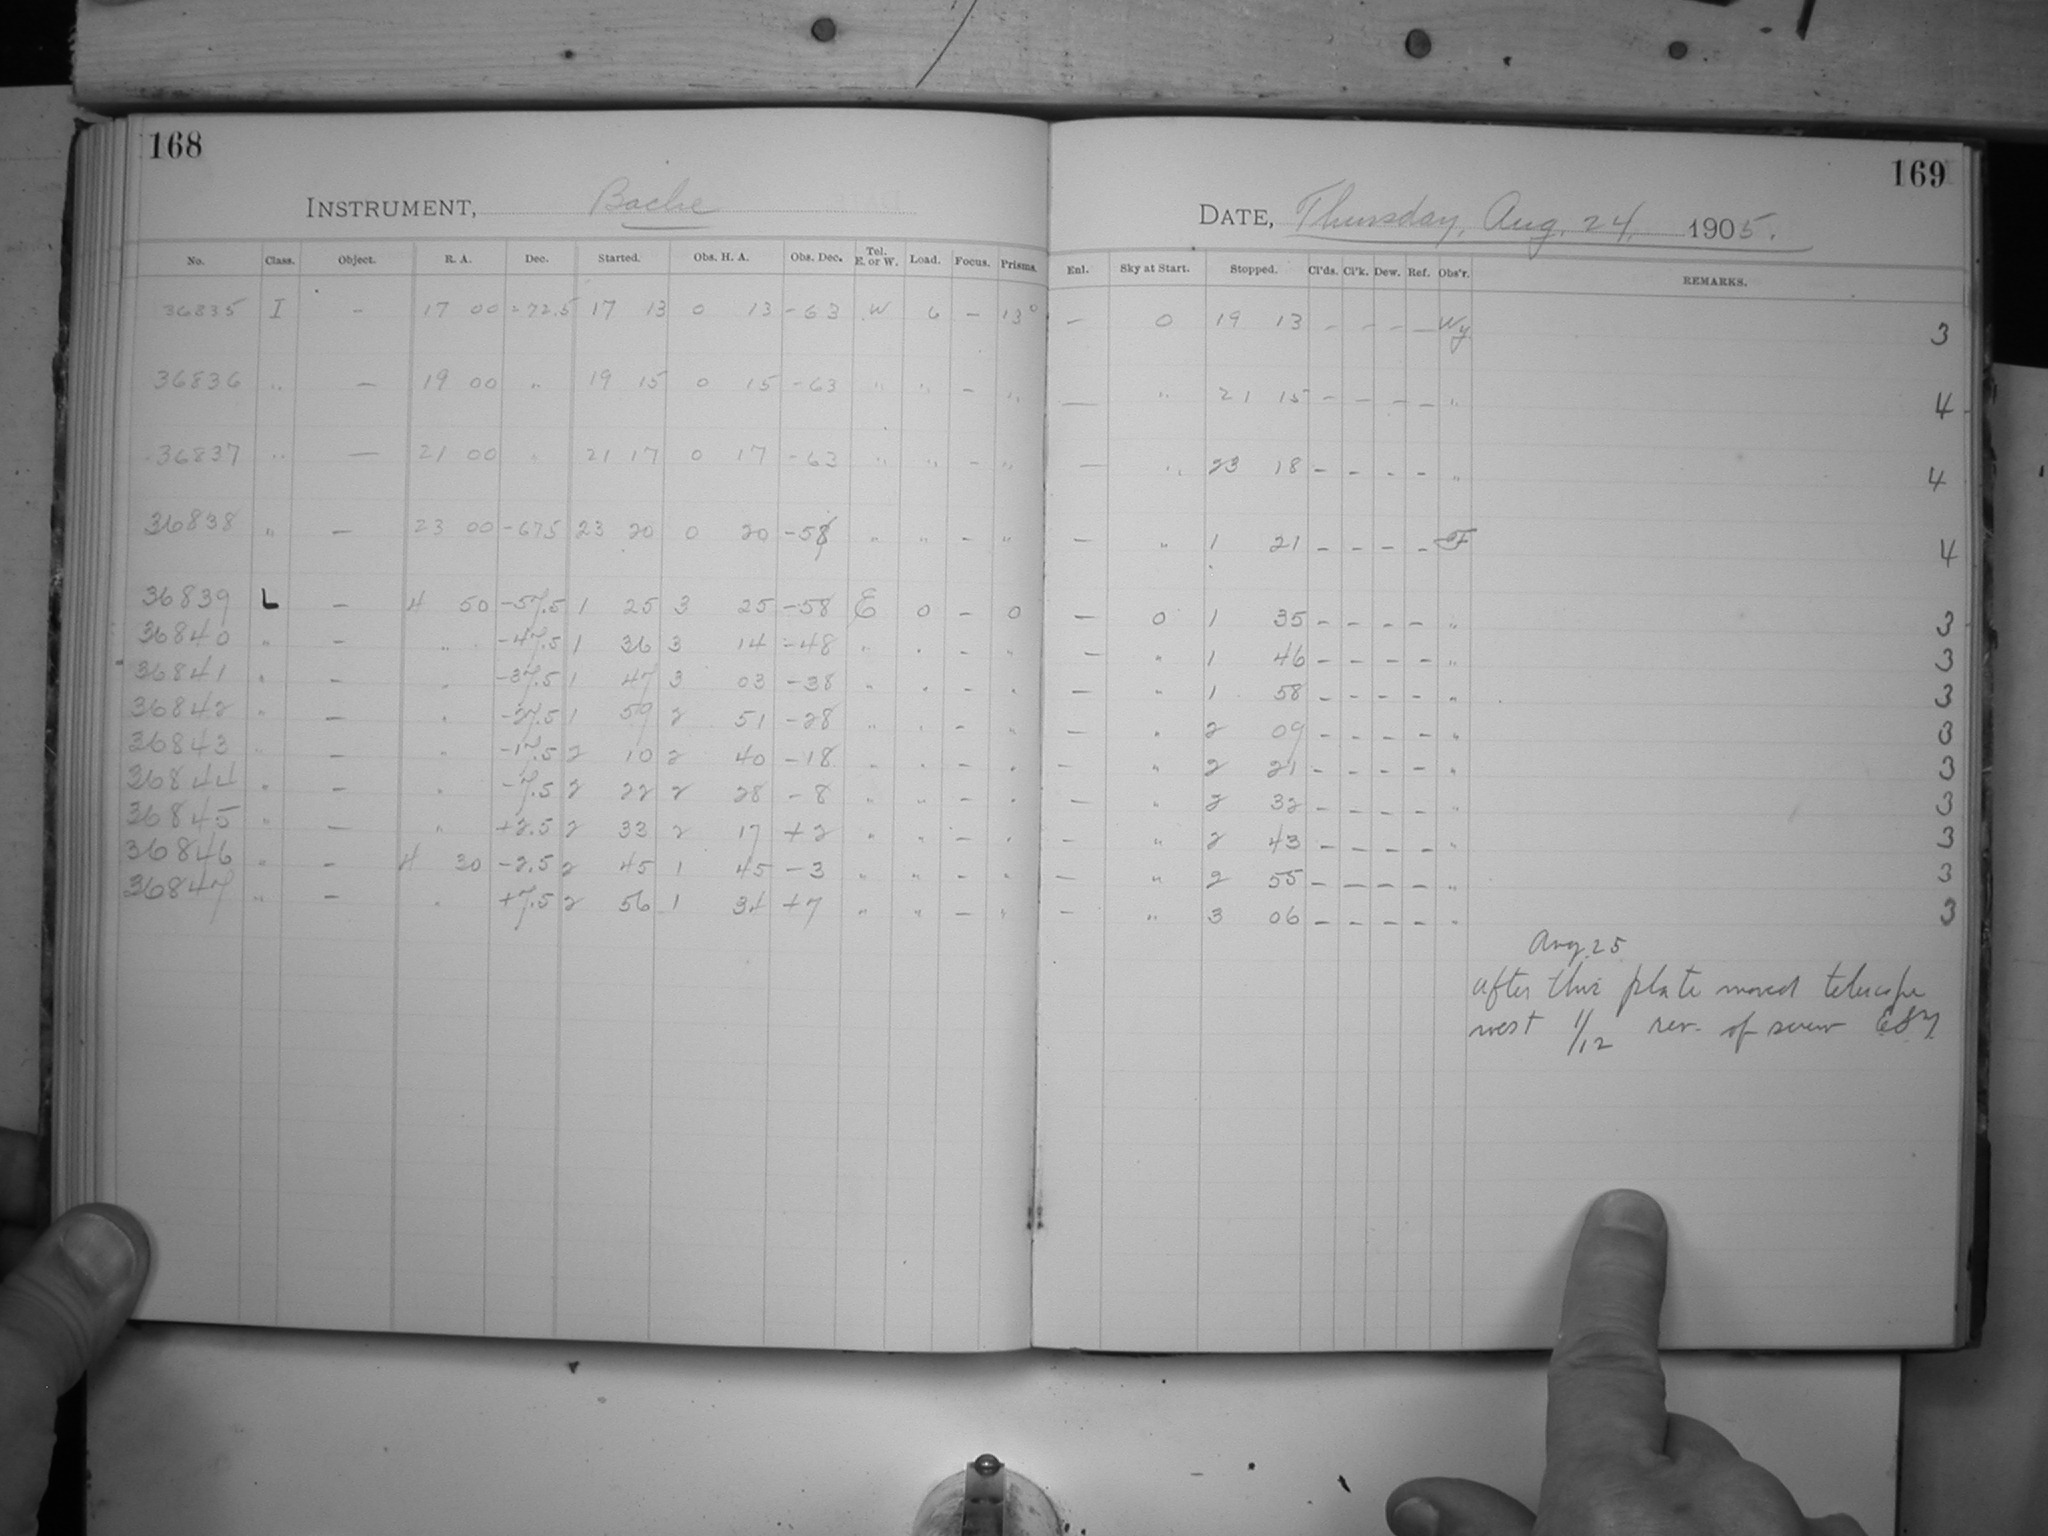 168
INSTRUMENT, Bache
No. Class. Object. R. A. Dec. Started. Obs. H. A. Obs. Dec. Tel. E. or W. Load. Focus. Prisms.
36835 I - 17 00 -72.5 17 13 0 13 -63 W 6 - 13°
36836 " - 19 00 " 19 15 0 15 -63 " " - "
36837 " - 21 00 " 21 17 0 17 -63 " " - "
36838 " - 23 00 -67.5 23 20 0 20 -58 " " - "
36839 L - 4 50 -57.5 1 25 3 25 -58 E 0 - 0
36840 " - " -47.5 1 36 3 14 -48 " " - "
36841 " - " -37.5 1 47 3 03 -38 " " - "
36842 " - " -27.5 1 59 2 51 -28 " " - "
36843 " - " -17.5 2 10 2 40 -18 " " - "
36844 " - " -7.5 2 22 2 28 -8 " " - "
36845 " - " +2.5 2 33 2 17 +2 " " - "
36846 " - 4 30 -2.5 2 45 1 45 -3 " " - "
36847 " - " +7.5 2 56 1 34 +7 " " - "
169
DATE, Thursday, Aug. 24, 1905.
Enl. Sky at Start. Stopped. Cl'ds. Cl'k. Dew. Ref. Obs'r. REMARKS.
- 0 19 13 - - - - Wy 3
- " 21 15 - - - - " 4
- " 23 18 - - - - " 4
- " 1 21 - - - - F 4
- 0 1 35 - - - - " 3
- " 1 46 - - - - " 3
- " 1 58 - - - - " 3
- " 2 09 - - - - " 3
- " 2 21 - - - - " 3
- " 2 32 - - - - " 3
- " 2 43 - - - - " 3
- " 2 55 - - - - " 3
- " 3 06 - - - - " 3
Aug. 25
after this plate moved telescope
west 1/12 rev. of screw